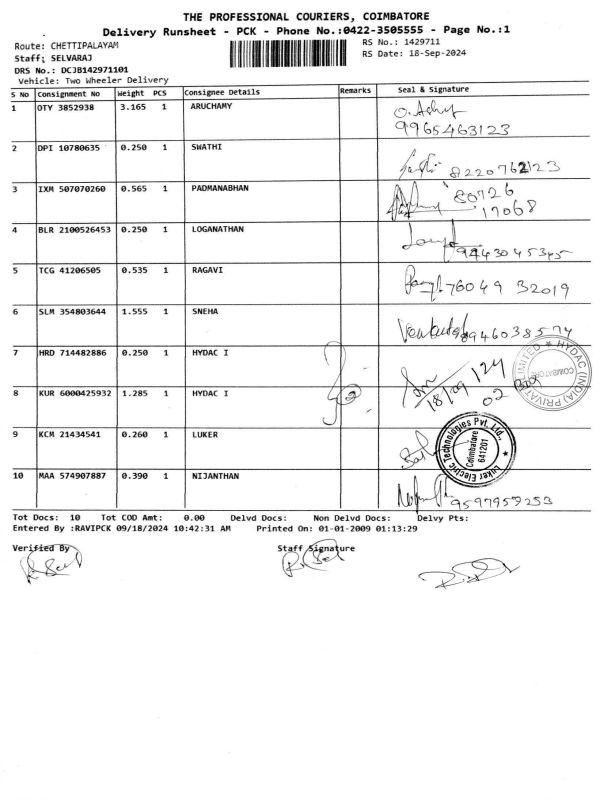 THE PROFESSIONAL COURIERS, COIMBATORE
Delivery Runsheet - PCK - Phone No.:0422-3505555 - Page No.:1
Route: CHETTIPALAYAM
RS No.: 1429711
Staff: SELVARAJ
RS Date: 18-Sep-2024
DRS No.: DCJB142971101
Vehicle: Two Wheeler Delivery
S No Consignment No Weight PCS Consignee Details Remarks Seal & Signature
1 OTY 3852938 3.165 1 ARUCHAMY
9965463123
2 DPI 10780635 0.250 1 SWATHI
8220762123
3 IXM 507070260 0.565 1 PADMANABHAN
80726
17068
4 BLR 2100526453 0.250 1 LOGANATHAN
9443045345
5 TCG 41206505 0.535 1 RAGAVI
76049 32019
6 SLM 354803644 1.555 1 SNEHA
8946038574
7 HRD 714482886 0.250 1 HYDAC I
18/09/24
HYDAC (INDIA) PRIVATE LIMITED
COIMBATORE
8 KUR 6000425932 1.285 1 HYDAC I
02 Box
9 KCM 21434541 0.260 1 LUKER
Luker Electric Technologies Pvt. Ltd.,
Coimbatore
641201
10 MAA 574907887 0.390 1 NIJANTHAN
9597959253
Tot Docs: 10 Tot COD Amt: 0.00 Delvd Docs: Non Delvd Docs: Delvy Pts:
Entered By :RAVIPCK 09/18/2024 10:42:31 AM Printed On: 01-01-2009 01:13:29
Verified By Staff Signature